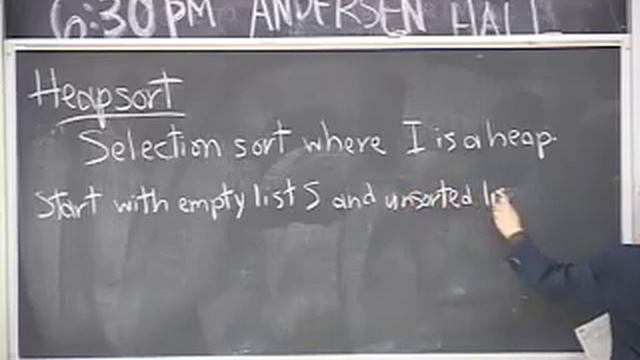 6:30 PM ANDERSEN HALL
Heapsort
Selection sort where I is a heap.
Start with empty list S and unsorted lis